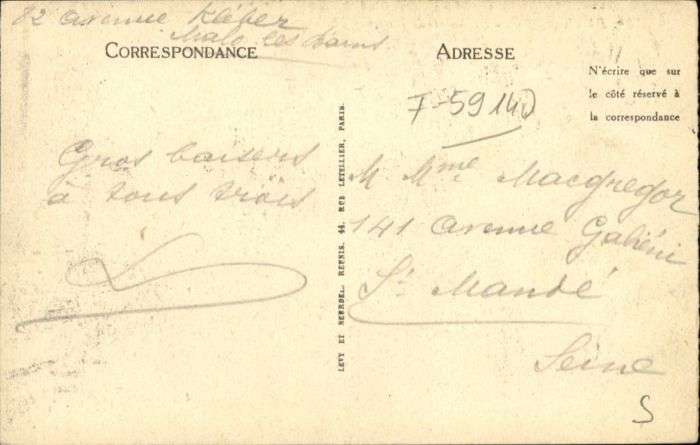 82 avenue Kléber
Malo les bains
CORRESPONDANCE
ADRESSE
N'écrire que sur
le côté réservé à
la correspondance
F-59140
Gros baisers
à tous trois
LEVY ET NEURDEIN REUNIS, 44, RUE LETELLIER, PARIS.
M Mme Macgregor
141 avenue Galiéni
St Mandé
Seine
S